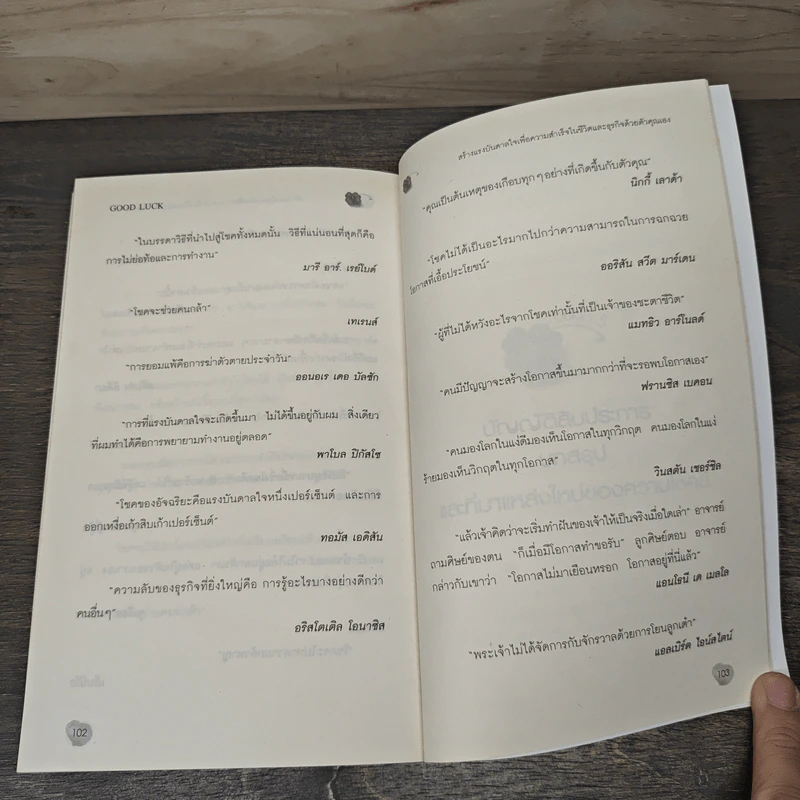 GOOD LUCK
"ในบรรดาวิธีที่นำไปสู่โชคทั้งหมดนั้น วิธีที่แน่นอนที่สุดก็คือ
การไม่ย่อท้อและการทำงาน"
มารี อาร์. เรย์ไบด์
"โชคจะช่วยคนกล้า"
เทเรนส์
"การยอมแพ้คือการฆ่าตัวตายประจำวัน"
ออนอเร เดอ บัลซัก
"การที่แรงบันดาลใจจะเกิดขึ้นมา ไม่ได้ขึ้นอยู่กับผม สิ่งเดียว
ที่ผมทำได้คือการพยายามทำงานอยู่ตลอด"
พาโบล ปิกัสโซ
"โชคของอัจฉริยะคือแรงบันดาลใจหนึ่งเปอร์เซ็นต์ และการ
ออกเหงื่อเก้าสิบเก้าเปอร์เซ็นต์"
ทอมัส เอดิสัน
"ความลับของธุรกิจที่ยิ่งใหญ่คือ การรู้อะไรบางอย่างดีกว่า
คนอื่นๆ"
อริสโตเติล โอนาซิส
102
สร้างแรงบันดาลใจเพื่อความสำเร็จในชีวิตและธุรกิจด้วยตัวคุณเอง
"คุณเป็นต้นเหตุของเกือบทุกๆอย่างที่เกิดขึ้นกับตัวคุณ"
นิกกี้ เลาด้า
"โชคไม่ได้เป็นอะไรมากไปกว่าความสามารถในการฉกฉวย
โอกาสที่เอื้อประโยชน์"
ออริสัน สวีต มาร์เดน
"ผู้ที่ไม่ได้หวังอะไรจากโชคเท่านั้นที่เป็นเจ้าของชะตาชีวิต"
แมทธิว อาร์โนลด์
"คนมีปัญญาจะสร้างโอกาสขึ้นมามากกว่าที่จะรอพบโอกาสเอง"
ฟรานซิส เบคอน
"คนมองโลกในแง่ดีมองเห็นโอกาสในทุกวิกฤต คนมองโลกในแง่
ร้ายมองเห็นวิกฤตในทุกโอกาส"
วินสตัน เชอร์ชิล
"แล้วเจ้าคิดว่าจะเริ่มทำฝันของเจ้าให้เป็นจริงเมื่อใดเล่า" อาจารย์
ถามศิษย์ของตน "ก็เมื่อมีโอกาสทำขอรับ" ลูกศิษย์ตอบ อาจารย์
กล่าวกับเขาว่า "โอกาสไม่มาเยือนหรอก โอกาสอยู่ที่นี่แล้ว"
แอนโธนี เด เมลโล
"พระเจ้าไม่ได้จัดการกับจักรวาลด้วยการโยนลูกเต๋า"
แอลเบิร์ต ไอน์สไตน์
103